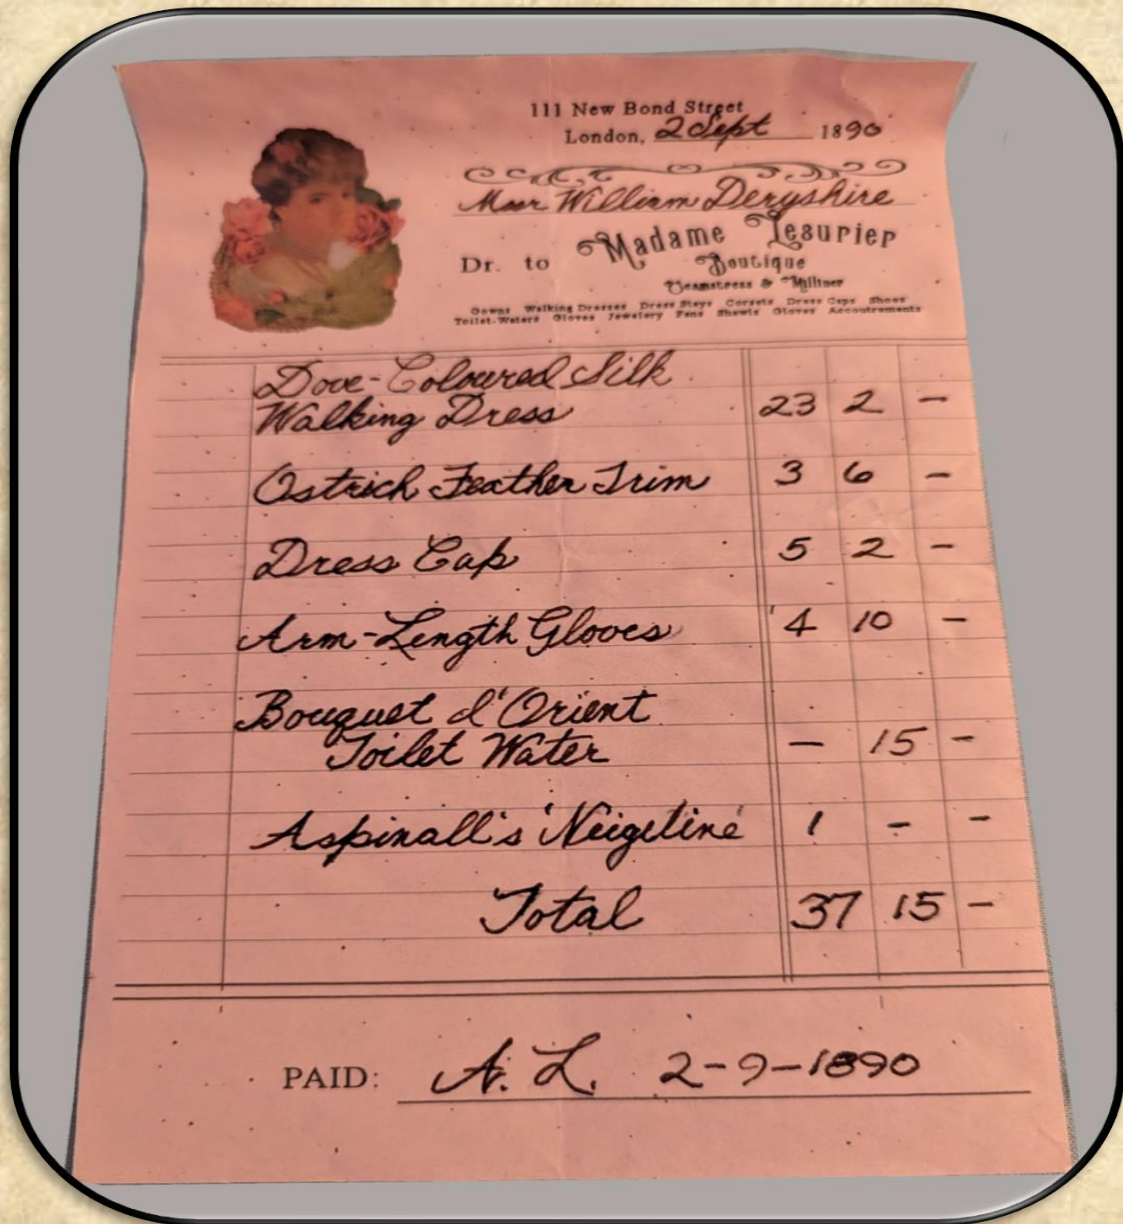 111 New Bond Street
London, 2 Sept 1890
William Deryshire
Dr. to Madame Lesurier
Boutique
Seamstress & Milliner
Gowns Walking Dresses Dress Stays Corsets Dress Caps Shoes
Toilet-Waters Gloves Jewelery Fans Shawls Gloves Accoutrements
Dove-Coloured Silk
Walking Dress 23 2 -
Ostrich Feather Trim 3 6 -
Dress Cap 5 2 -
Arm-Length Gloves 4 10 -
Bouquet d'Orient
Toilet Water - 15 -
Aspinall's 'Neigeline' 1 - -
Total 37 15 -
PAID: A. L. 2-9-1890